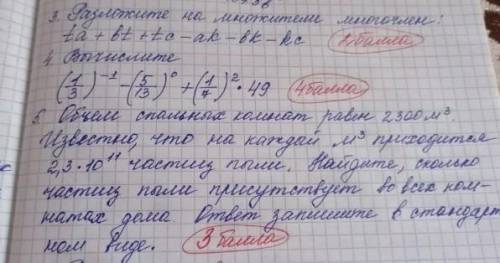 3. Разложите на множители многочлен:
ta + bt + tc - ak - bk - kc
4. Вычислите
(1/3)⁻¹ - (5/13)⁰ + (1/7)² · 49 4 балла
5. Объем спальных комнат равен 2300 м³.
Известно, что на каждый м³ приходится
2,3·10¹¹ частиц пыли. Найдите, сколько
частиц пыли присутствует во всех ком-
натах дома Ответ запишите в стандарт
ном виде. 3 балла